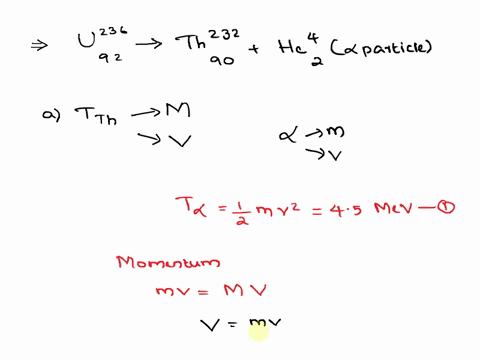 ⇒ U²³⁶₉₂ → Th²³²₉₀ + He⁴₂ (α particle)
a) T_Th → M
→ V
α → m
→ v
T_α = 1/2 mv² = 4.5 MeV — ①
Momentum
mv = MV
V = mv